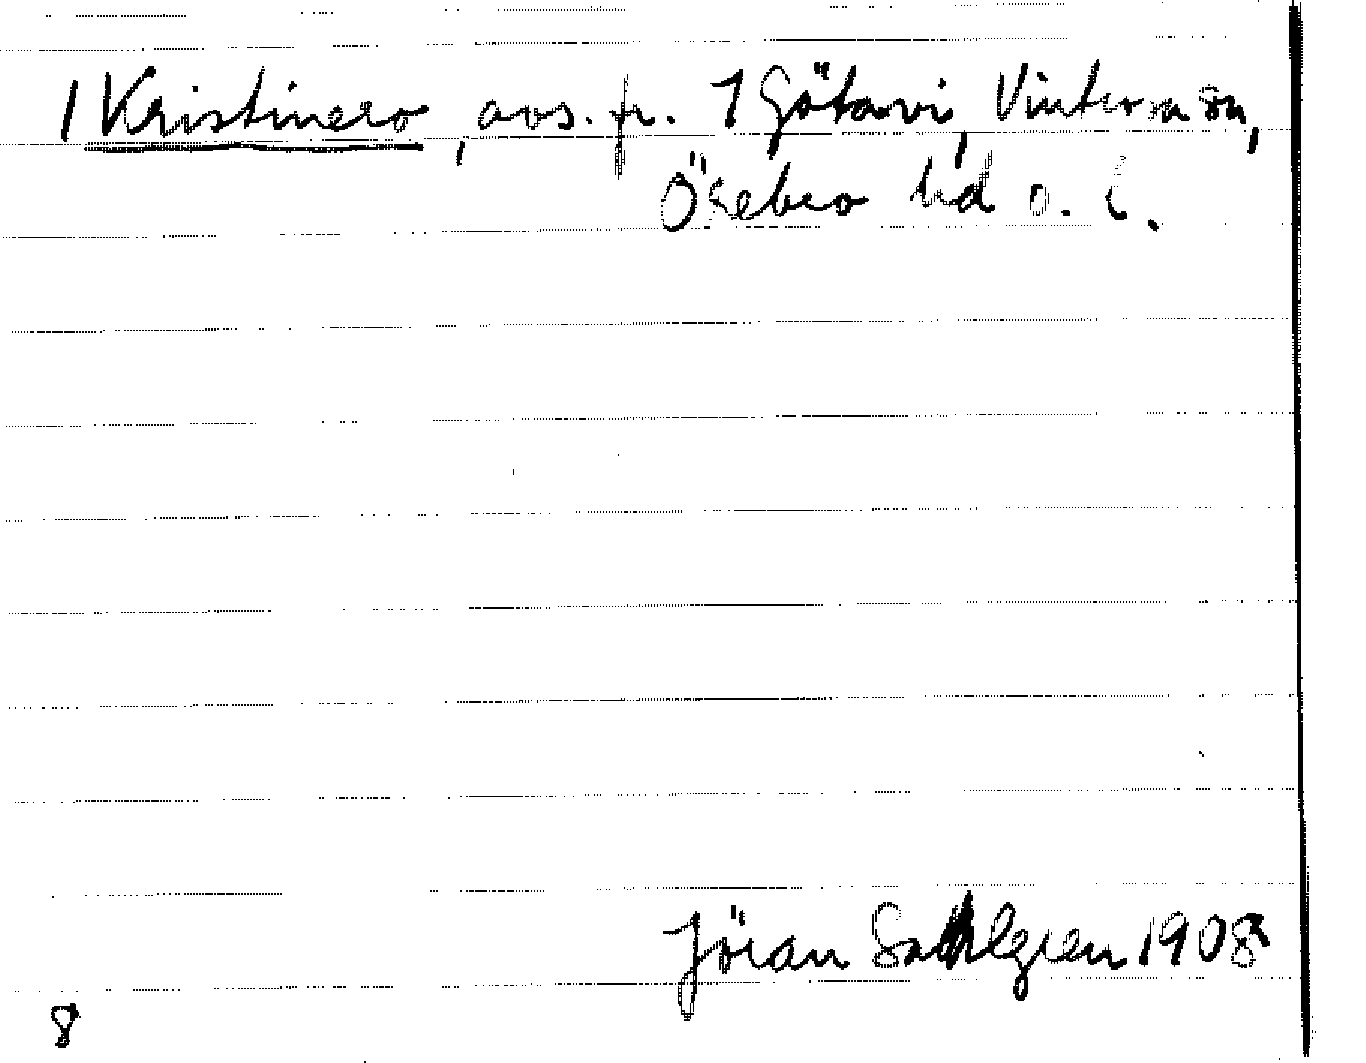 1 Kristinero, avs. fr. 1 Götavi, Vinteråsa sn,
Örebro hd o. l.
Jöran Sahlgren 1908
8